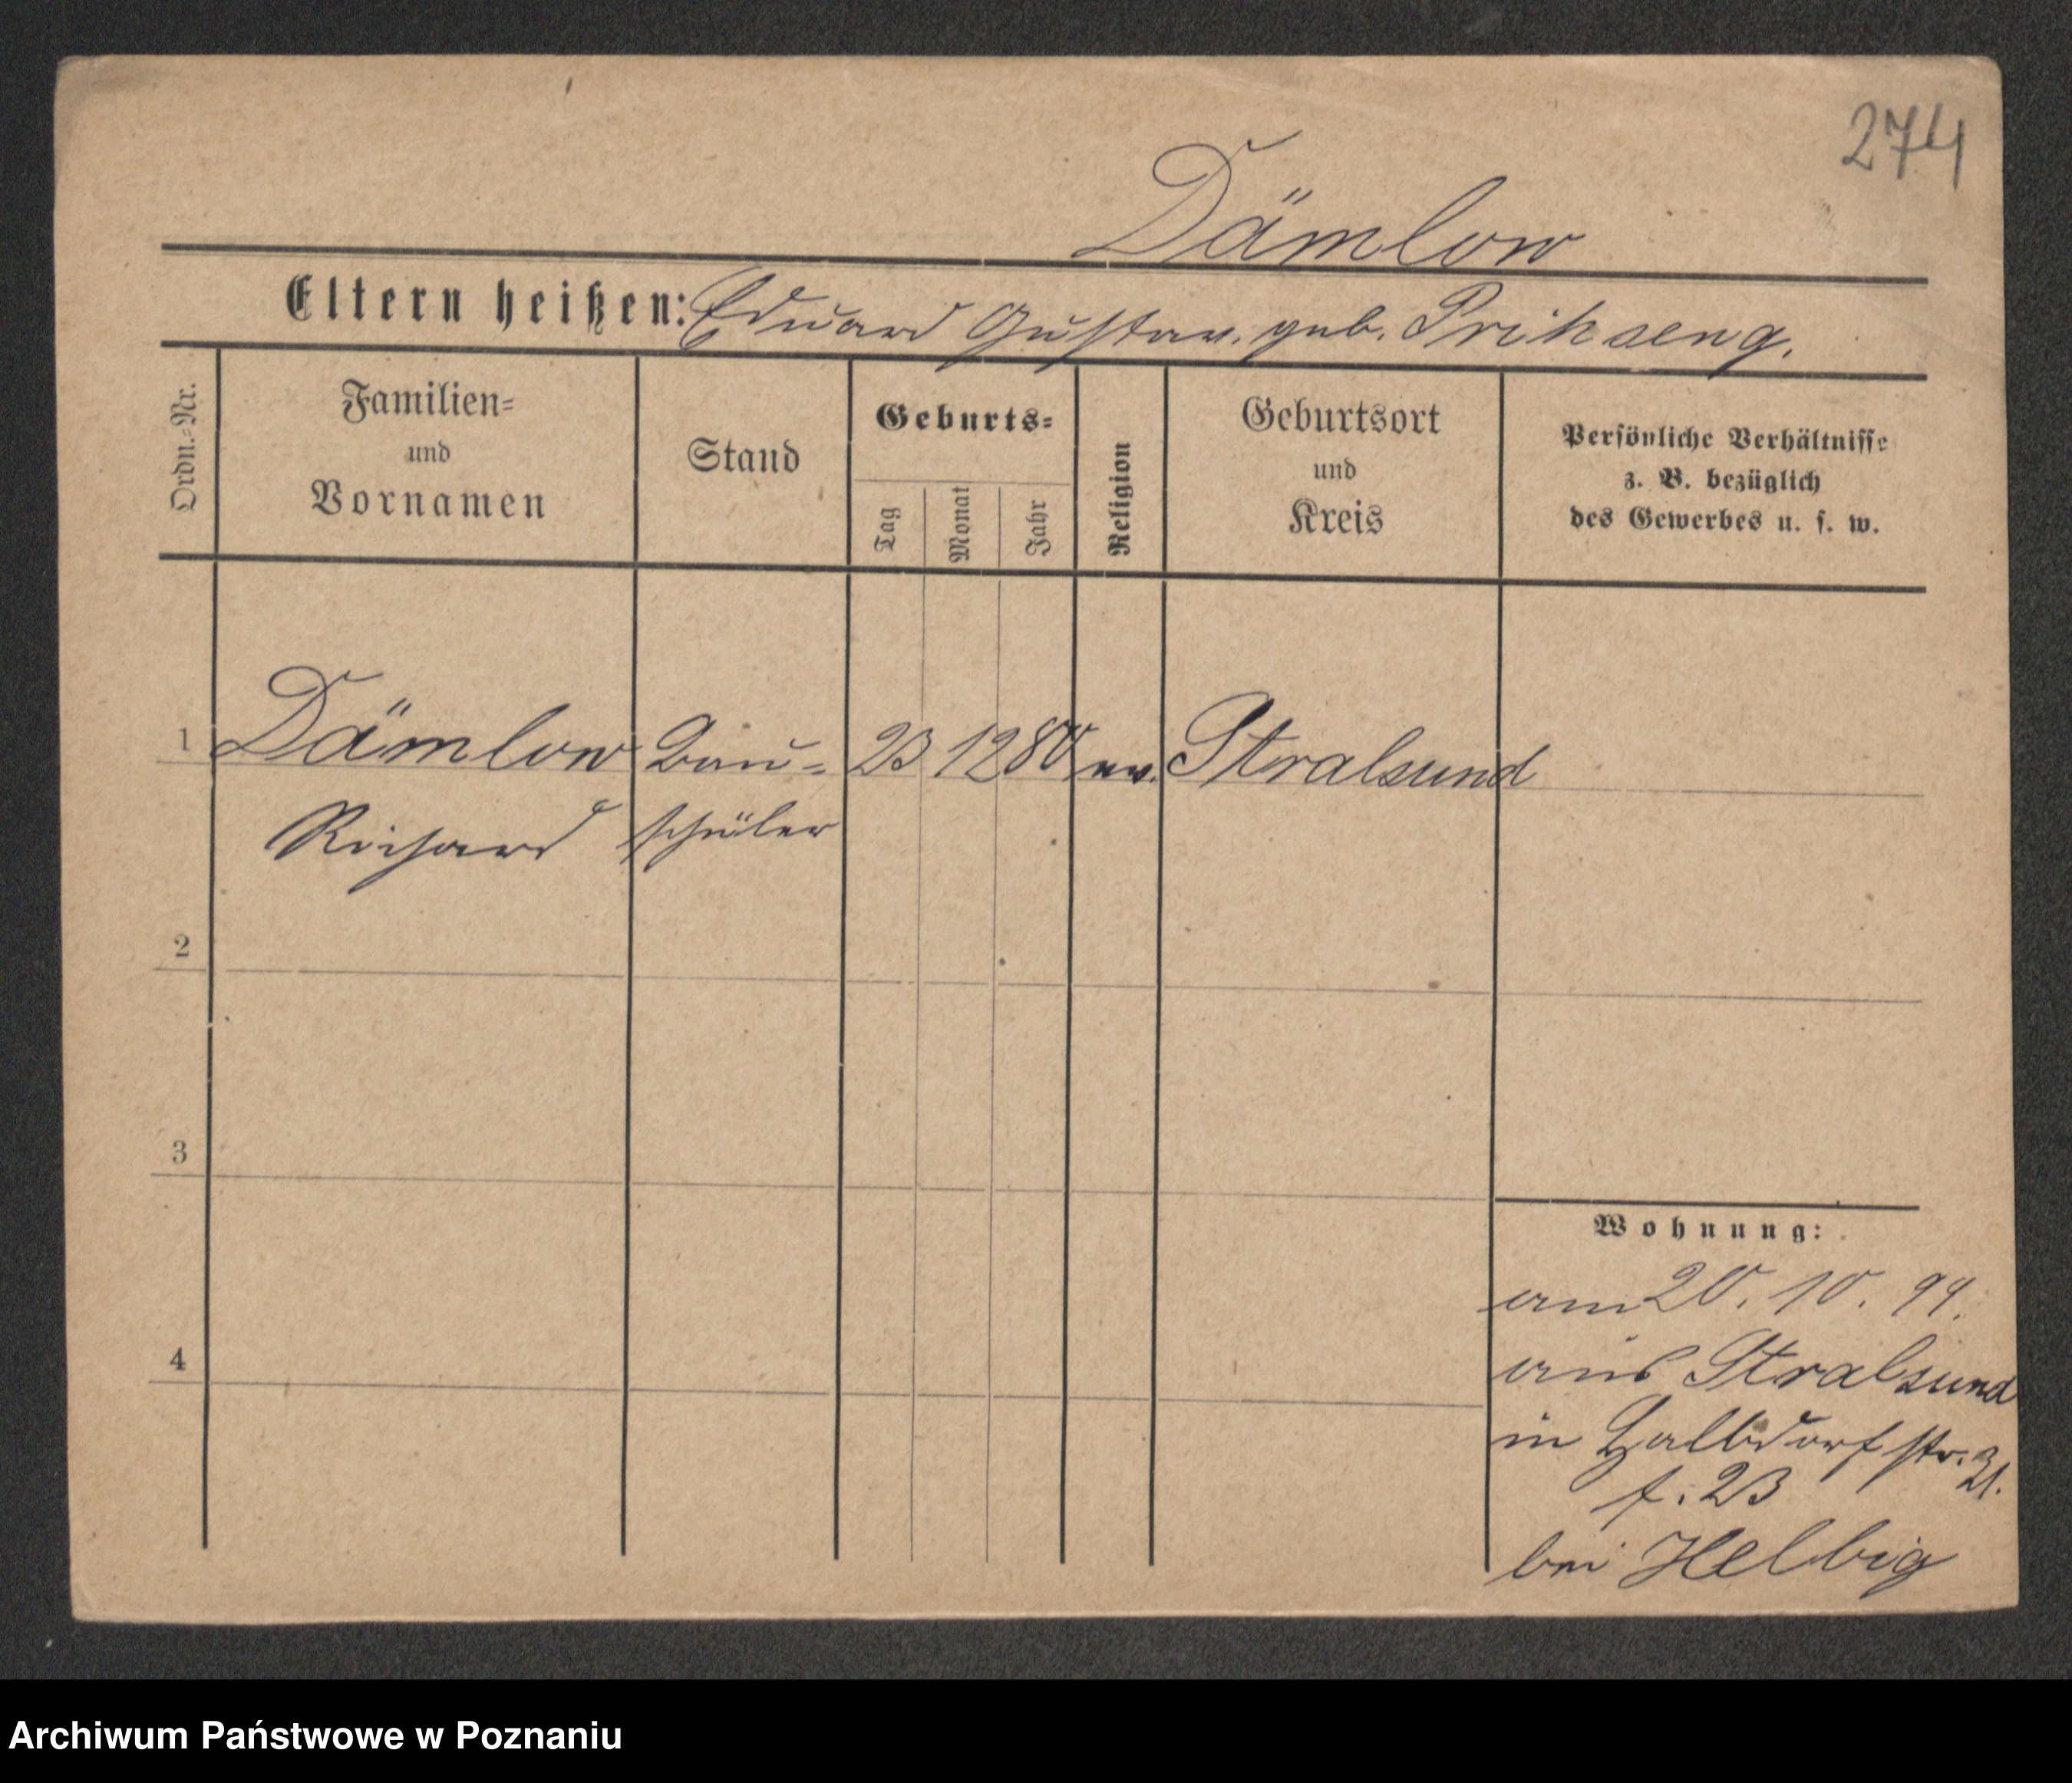 274
Dämlow
Eltern heißen: Eduard Gustav. geb. Prihseng.
Ordn.-Nr.
Familien-
und
Vornamen
Stand
Geburts-
Tag
Monat
Jahr
Religion
Geburtsort
und
Kreis
Persönliche Verhältnisse
z. B. bezüglich
des Gewerbes u. s. w.
1 Dämlow Bau- 23 12 80 ev. Stralsund
Richard schüler
2
3
4
Wohnung:
am 20. 10. 99.
aus Stralsund
in Halbdorfstr. 31.
f. 23
bei Helbig
Archiwum Państwowe w Poznaniu